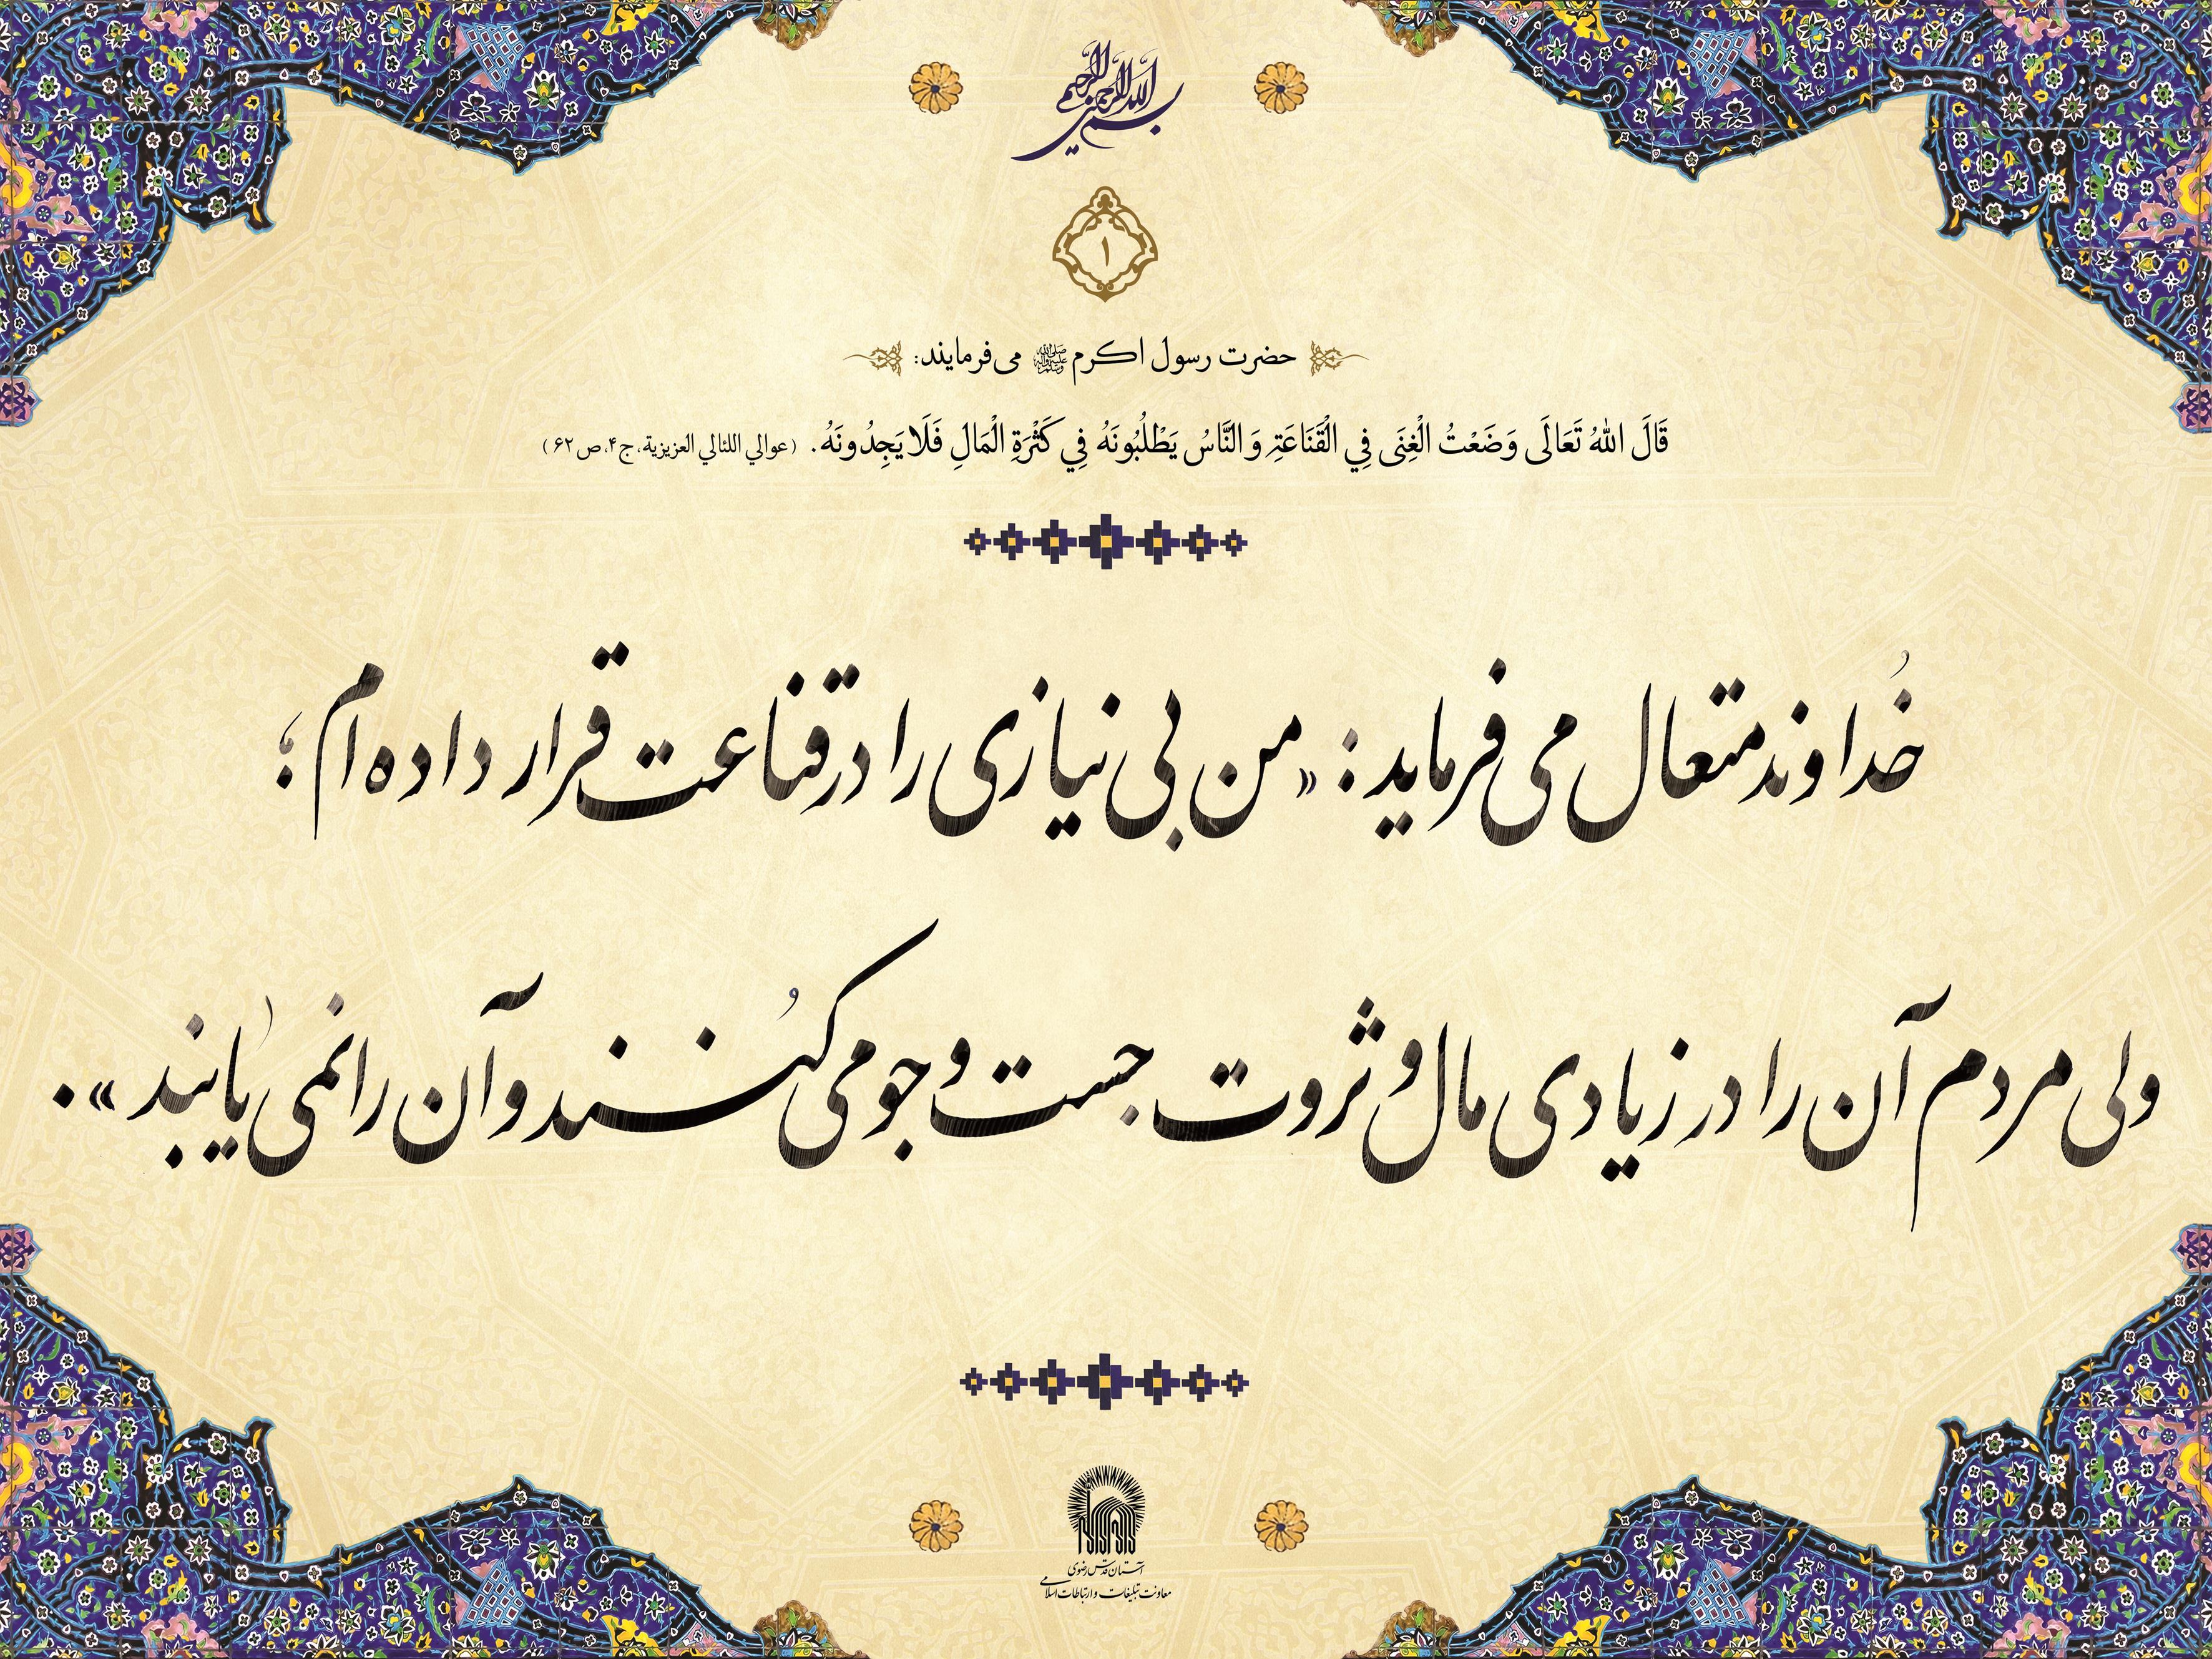 بسم الله الرحمن الرحیم
۱
حضرت رسول اکرم صلی الله علیه وآله وسلم می‌فرمایند:
قَالَ اللهُ تَعَالَى وَضَعْتُ الْغِنَى فِي الْقَنَاعَةِ وَ النَّاسُ يَطْلُبُونَهُ فِي كَثْرَةِ الْمَالِ فَلَا يَجِدُونَهُ. (عوالي اللئالي العزيزية، ج۴، ص۶۲)
خُداوند متعال می فرماید: «من بی نیازی را در قناعت قرار داده ام؛
ولی مردم آن را در زیادی مال و ثروت جست و جو می کُنند و آن را نمی یابند».
آستان قدس رضوی
معاونت تبلیغات و ارتباطات اسلامی